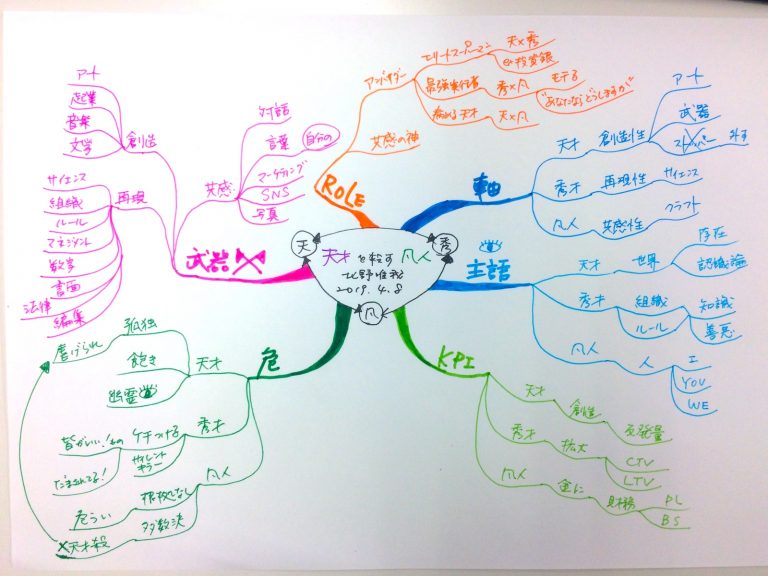 天才を殺す凡人
北野唯我
2019.4.8
天
秀
凡
ROLE
アンバサダー
エリートスーパーマン
天×秀
投資銀
最強実行者
秀×凡
モテる
"あなたならどうしますか"
病める天才
天×凡
共感の神
軸
天才
創造性
アート
武器
ストッパー
外す
秀才
再現性
サイエンス
凡人
共感性
クラフト
主語
天才
世界
存在
認識論
秀才
組織
知識
ルール
善悪
凡人
人
I
YOU
WE
KPI
天才
創造
反発量
秀才
拡大
CTV
LTV
凡人
金に
財務
PL
BS
危
天才
孤独
虐げられ
飽き
幽霊
秀才
ケチつける
皆がいい!もの
サイレントキラー
だまされてる!
凡人
根拠なし
危うい
多数決
天才殺
武器
創造
アート
起業
音楽
文学
再現
サイエンス
組織
ルール
マネジメント
数字
言画
法律
編集
共感
対話
言葉
自分の
マーケティング
SNS
写真